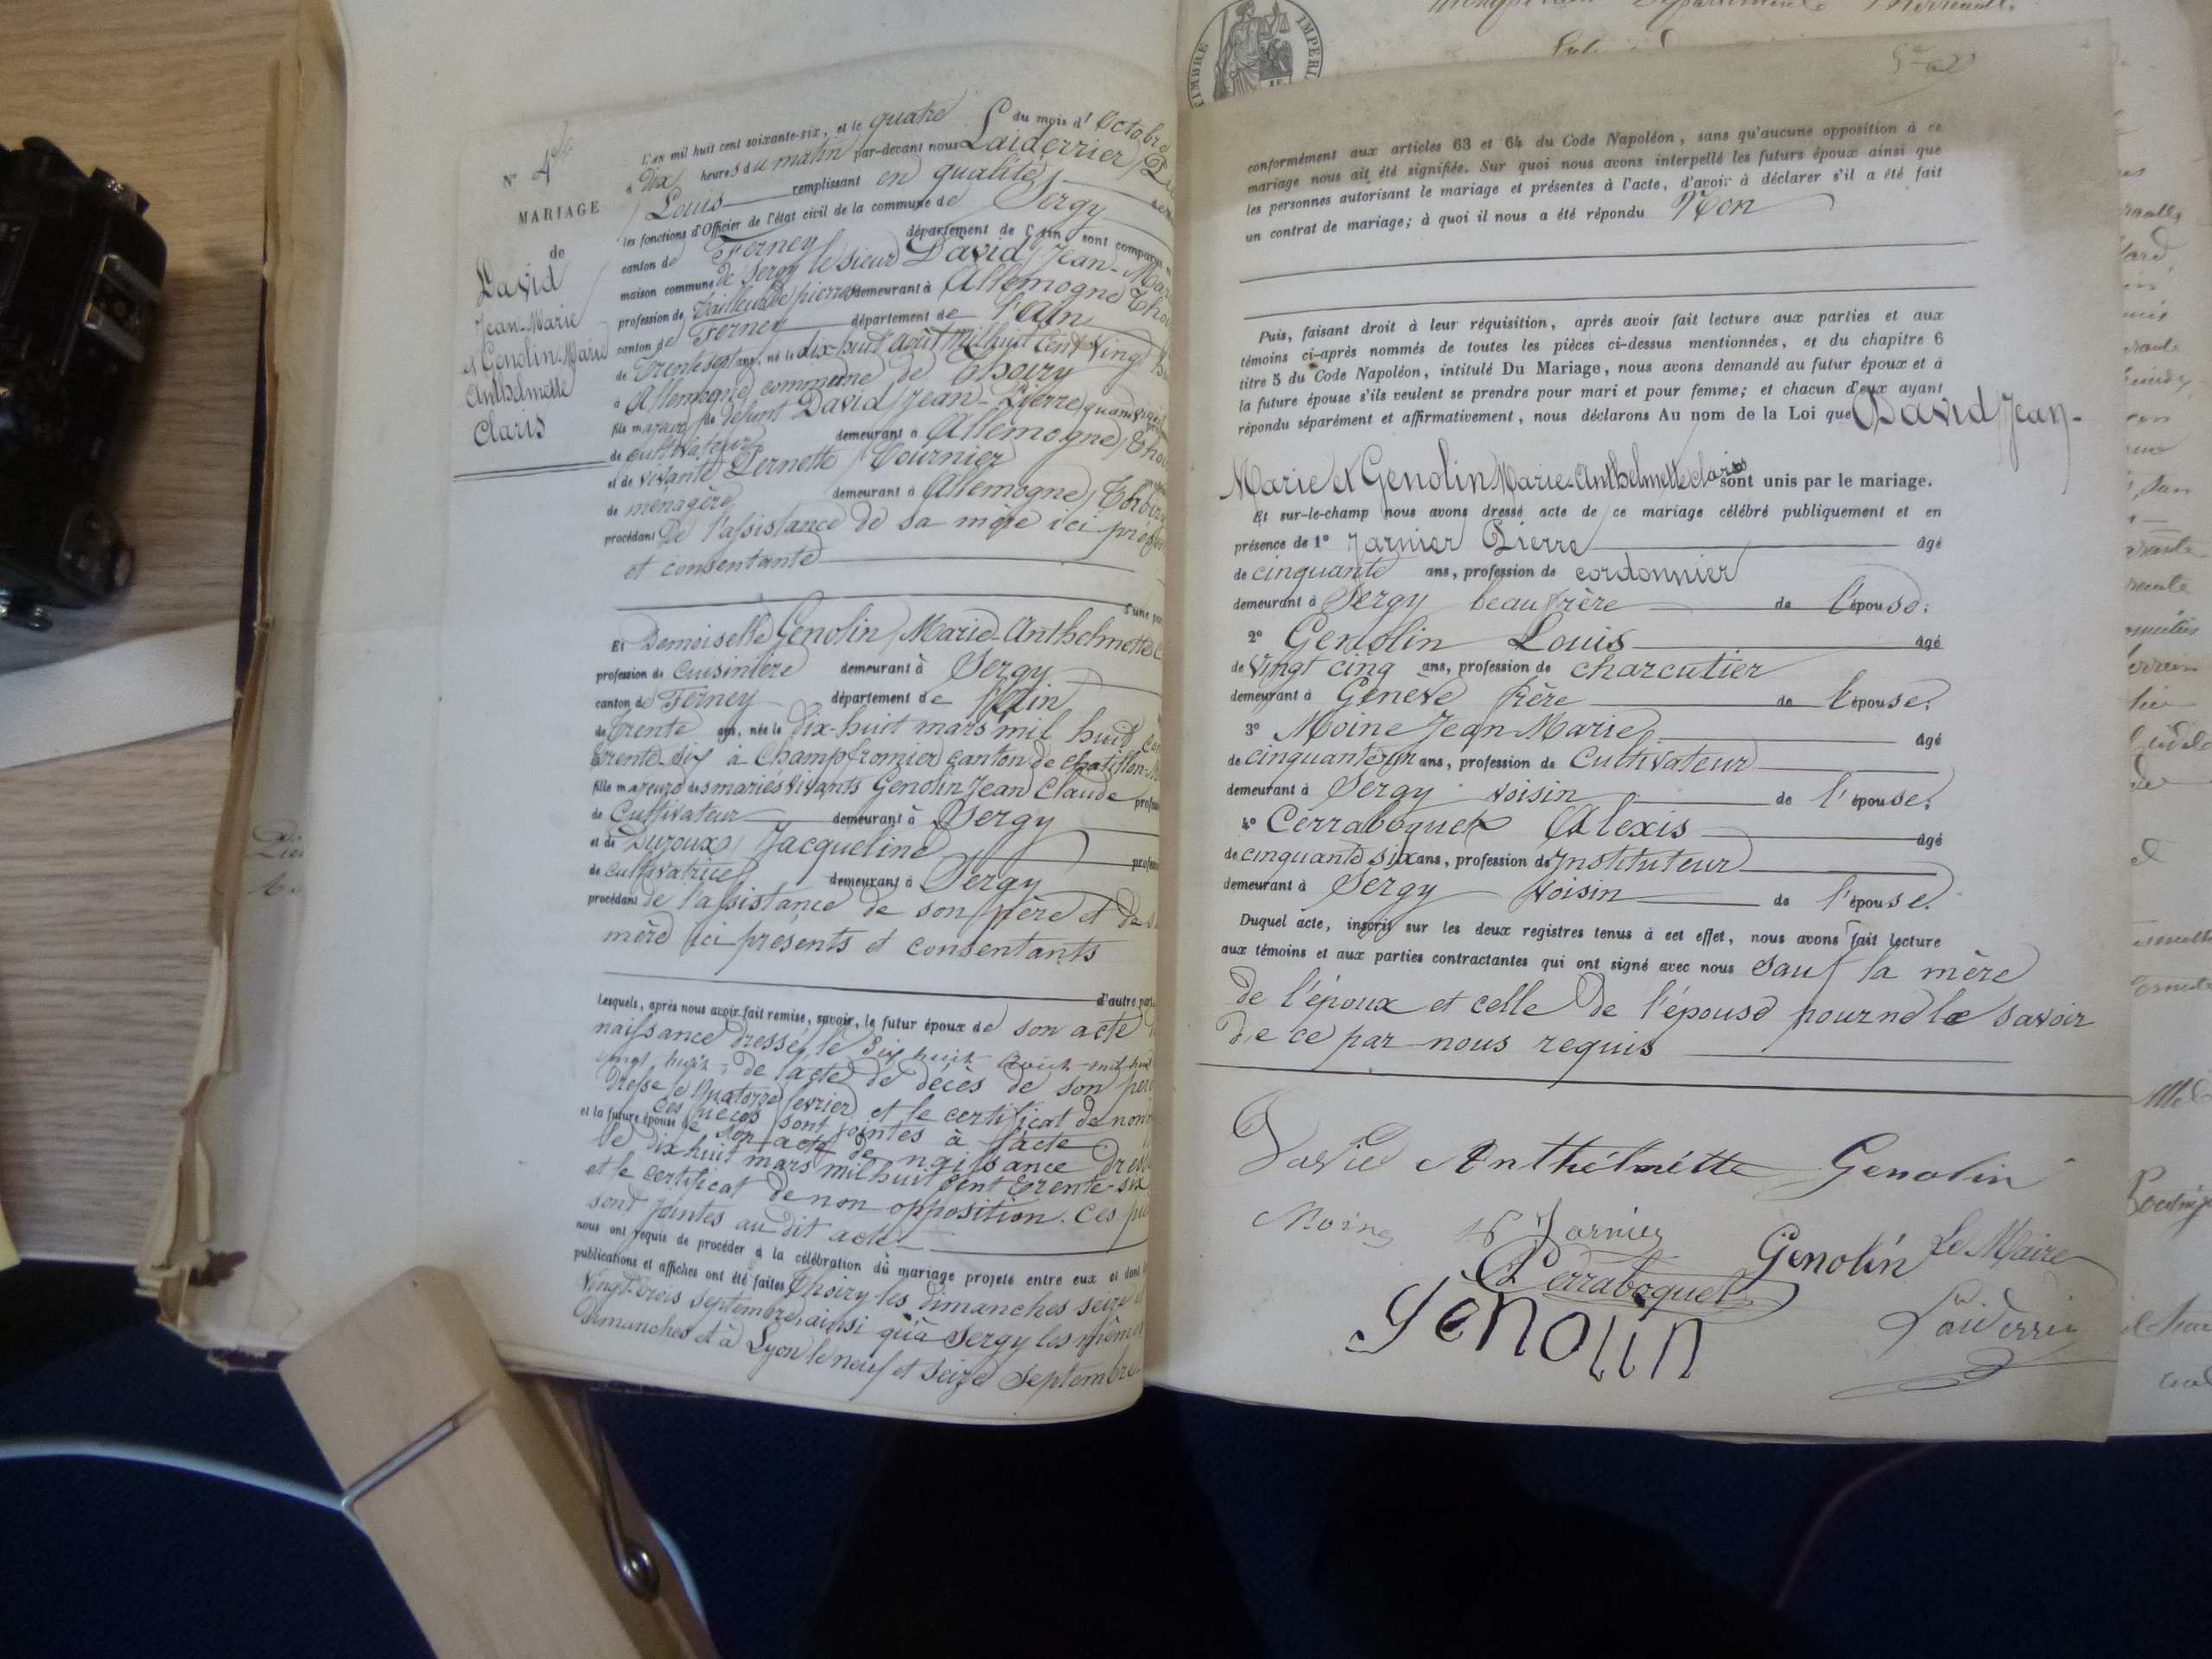 N° 4
MARIAGE
de
David
Jean-Marie
et Genolin Marie
Anthelmette
Claris
L'an mil huit cent soixante-six, et le quatre du mois d'Octobre
à Dix heures du matin par-devant nous Laiderrier
Louis remplissant en qualité
les fonctions d'Officier de l'état civil de la commune de Sergy
canton de Ferney département de l'Ain, sont comparus
maison commune de Sergy le sieur David Jean-Mar
profession de tailleur de pierres demeurant à Allemogne
canton de Ferney département de l'Ain
de Trente sept ans, né le dix-huit août mil huit cent vingt
à Allemogne commune de Thoiry
fils majeur de défunt David Jean-Pierre quand vivait
de cultivateur demeurant à Allemogne
et de vivante Pernette Tournier
de ménagère demeurant à Allemogne Thoiry
procédant De l'assistance de sa mère ici présen
et consentante
d'une par
Et Demoiselle Genolin Marie-Anthelmette
profession de Cuisinière demeurant à Sergy
canton de Ferney département de l'Ain
de Trente ans, née le Dix-huit mars mil huit cen
trente-six à Champfromier canton de chatillon
fille majeure des mariés vivants Genolin Jean Claude profess
de Cultivateur demeurant à Sergy
et de Duroux Jacqueline profess
de cultivatrice demeurant à Sergy
procédant de l'assistance de son père et de s
mère ici présents et consentants
d'autre part.
Lesquels, après nous avoir fait remise, savoir, le futur époux de son acte
naissance dressé le Dix huit Août mil huit
vingt huit; de l'acte de décès de son père
dressé le Quatorze fevrier et le certificat de non
Ces pièces sont jointes à l'acte
et la future épouse de son acte de naissance dress
le Dix huit mars mil huit cent trente-six
et le certificat de non opposition. Ces piè
sont jointes au dit acte
nous ont requis de procéder à la célébration du mariage projeté entre eux et dont
publications et affiches ont été faites Thoiry les dimanches seize
Vingt-trois septembre, ainsi qu'à Sergy les mêmes
Dimanches et à Lyon le neuf et seize Septembre
TIMBRE IMPERI
conformément aux articles 63 et 64 du Code Napoléon, sans qu'aucune opposition à ce
mariage nous ait été signifiée. Sur quoi nous avons interpellé les futurs époux ainsi que
les personnes autorisant le mariage et présentes à l'acte, d'avoir à déclarer s'il a été fait
un contrat de mariage; à quoi il nous a été répondu Non
Puis, faisant droit à leur réquisition, après avoir fait lecture aux parties et aux
témoins ci-après nommés de toutes les pièces ci-dessus mentionnées, et du chapitre 6
titre 5 du Code Napoléon, intitulé Du Mariage, nous avons demandé au futur époux et à
la future épouse s'ils veulent se prendre pour mari et pour femme; et chacun d'eux ayant
répondu séparément et affirmativement, nous déclarons Au nom de la Loi que David Jean-
Marie et Genolin Marie-Anthelmette claris sont unis par le mariage.
Et sur-le-champ nous avons dressé acte de ce mariage célébré publiquement et en
présence de 1° Jarnier Pierre âgé
de cinquante ans, profession de cordonnier
demeurant à Sergy beau frère de l'épouse;
2° Genolin Louis âgé
de vingt cinq ans, profession de charcutier
demeurant à Genève frère de l'épouse;
3° Moine Jean Marie âgé
de cinquante un ans, profession de Cultivateur
demeurant à Sergy voisin de l'épouse;
4° Cerraboquet Alexis âgé
de cinquante six ans, profession d'Instituteur
demeurant à Sergy voisin de l'épouse.
Duquel acte, inscrit sur les deux registres tenus à cet effet, nous avons fait lecture
aux témoins et aux parties contractantes qui ont signé avec nous sauf la mère
de l'époux et celle de l'épouse pour ne le savoir
de ce par nous requis
David Anthélmétte Genolin
Moine Jarnier
Perraboquet Genolin Le Maire
Genolin Laiderrier